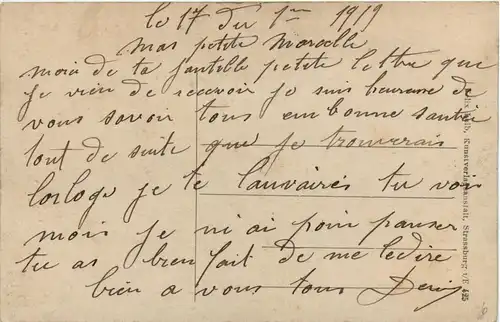 le 17 du 1er 1919
mas petite Marcelle
moin de ta jantille petite lettre que
je vien de recevoir je suis heureuse de
vous savoir tous em bonne santée
tout de suite que je trouverais
lorloge je te lauvairés tu vois
mois je ni ai poin panser
tu as bien fait de me ledire
bien a vous tous Denis
Kunstverlagsanstalt, Strassburg i/E 425